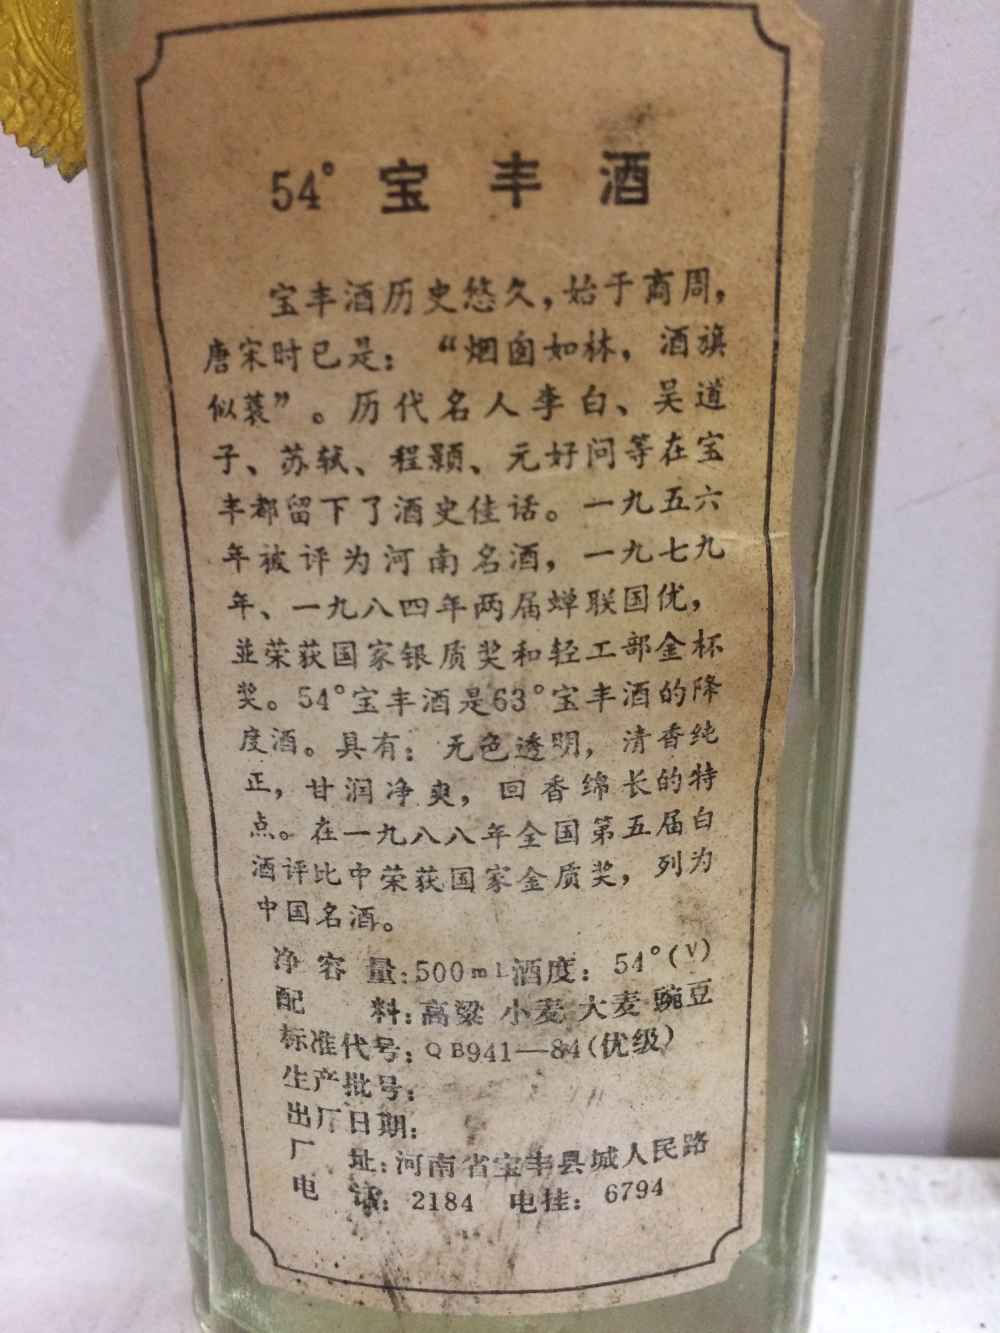 54° 宝丰酒
宝丰酒历史悠久，始于商周，
唐宋时已是：“烟囱如林，酒旗
似蓑”。历代名人李白、吴道
子、苏轼、程颢、元好问等在宝
丰都留下了酒史佳话。一九五六
年被评为河南名酒，一九七九
年、一九八四年两届蝉联国优，
並荣获国家银质奖和轻工部金杯
奖。54°宝丰酒是63°宝丰酒的降
度酒。具有：无色透明，清香纯
正，甘润净爽，回香绵长的特
点。在一九八八年全国第五届白
酒评比中荣获国家金质奖，列为
中国名酒。
净容量：500mL 酒度：54°(V)
配料：高粱 小麦 大麦 豌豆
标准代号：QB941—84(优级)
生产批号：
出厂日期：
厂址：河南省宝丰县城人民路
电话：2184 电挂：6794